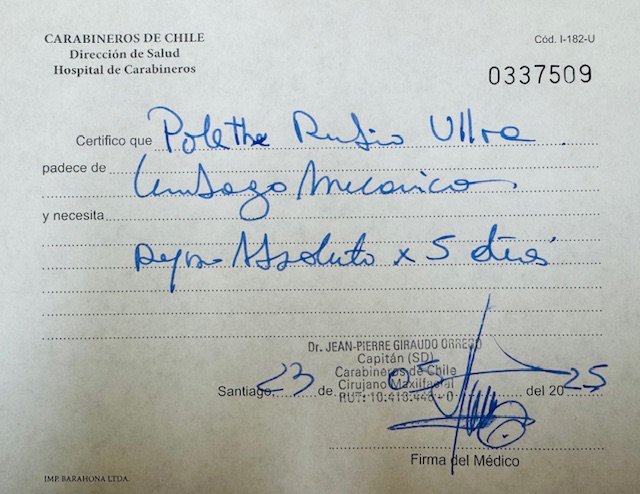 CARABINEROS DE CHILE
Dirección de Salud
Hospital de Carabineros
Cód. I-182-U
0337509
Certifico que Polethe Rubio Ulloa
padece de Lumbago Mecanico
y necesita
Reposo Absoluto x 5 dias
Dr. JEAN-PIERRE GIRAUDO ORREGO
Capitán (SD)
Carabineros de Chile
Cirujano Maxilfacial
RUT: 10.418.448-0
Santiago, 23 de 05 del 2025
Firma del Médico
IMP. BARAHONA LTDA.